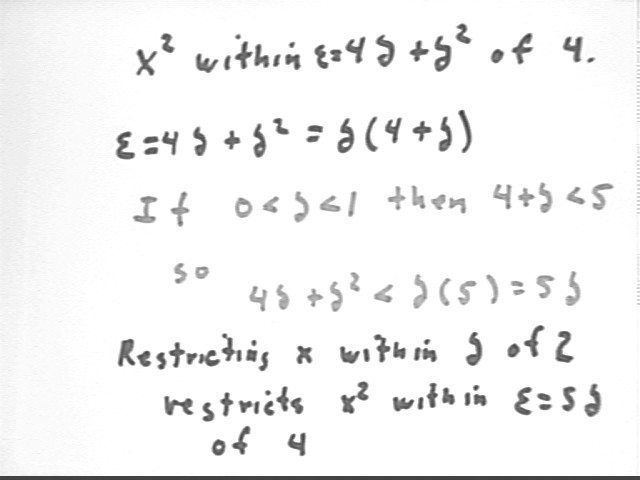 x² within ε=4δ+δ² of 4.
ε=4δ+δ² = δ(4+δ)
If 0<δ<1 then 4+δ<5
so 4δ+δ² < δ(5)=5δ
Restricting x within δ of 2
restricts x² within ε=5δ
of 4